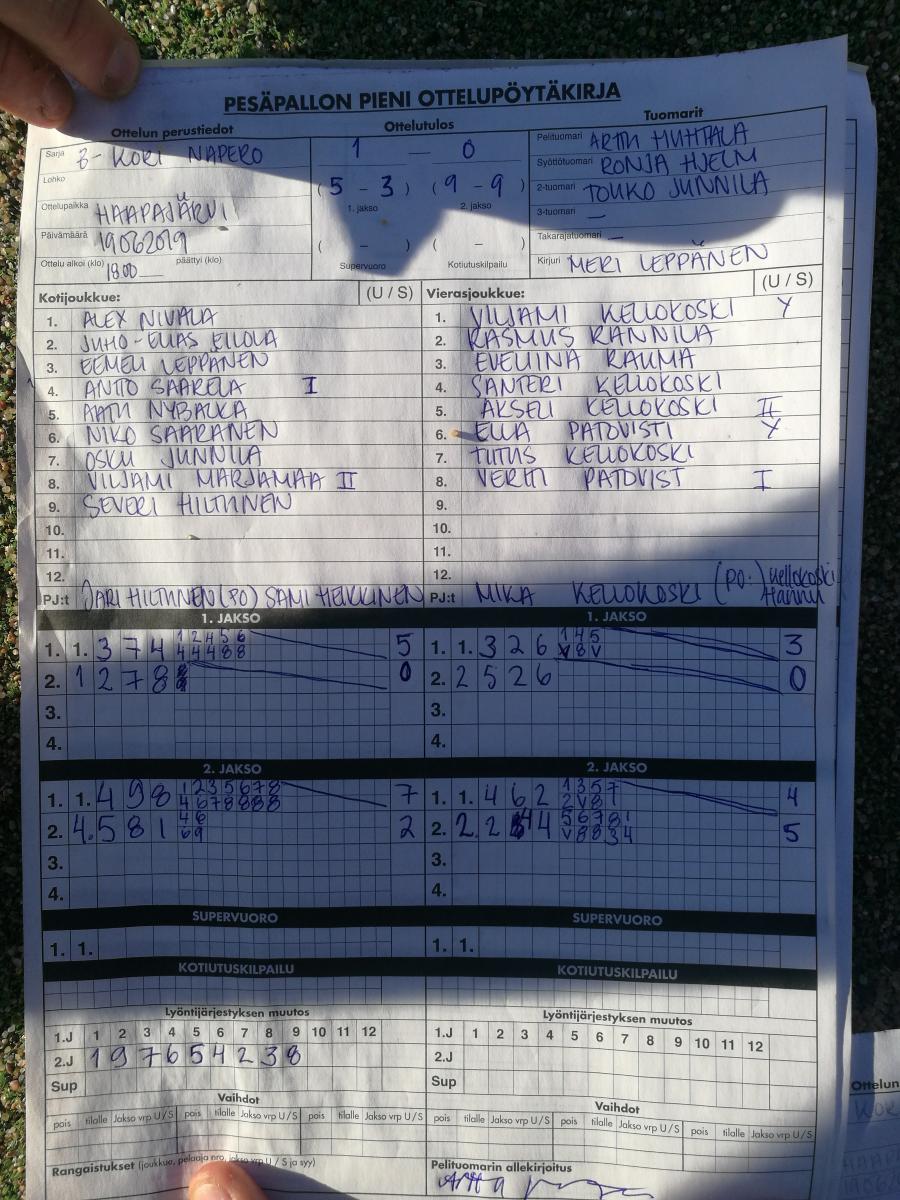 PESÄPALLON PIENI OTTELUPÖYTÄKIRJA
Ottelun perustiedot
Sarja B-KORI NAPERO
Lohko
Ottelupaikka HAAPAJÄRVI
Päivämäärä 19062019
Ottelu alkoi (klo) 1800 päättyi (klo)
Ottelutulos
1 — 0
(5 - 3) (9 - 9)
1. jakso 2. jakso
( - ) ( - )
Supervuoro Kotiutuskilpailu
Tuomarit
Pelituomari ARTTU HUHTALA
Syöttötuomari RONJA HJELM
2-tuomari TOUKO JUNNILA
3-tuomari —
Takarajatuomari —
Kirjuri MERI LEPPÄNEN
Kotijoukkue: (U / S)
1. ALEX NIVALA
2. JUHO-ELIAS EILOLA
3. EEMELI LEPPÄNEN
4. ANTTO SAARELA I
5. NYBACKA
6. NIKO SAARANEN
7. OSKU JUNNILA
8. VILJAMI MARJAMAA II
9. SEVERI HILTUNEN
10.
11.
12.
PJ:t JARI HILTUNEN (PO) SAMI HEIKKINEN
Vierasjoukkue: (U / S)
1. VILJAMI KELLOKOSKI Y
2. RASMUS RANNILA
3. EVELIINA RAUMA
4. SANTERI KELLOKOSKI
5. AKSELI KELLOKOSKI II
6. ELLA PATOVISTI Y
7. TUTUS KELLOKOSKI
8. VERTTI PATOVIST I
9.
10.
11.
12.
PJ:t MIKA KELLOKOSKI (PO:) Kellokoski Hannu
1. JAKSO
1. 1. 3 7 4 1 2 4 5 6 5
4 4 4 8 8
2. 1 2 7 8 0
3.
4.
1. JAKSO
1. 1. 3 2 6 1 4 5 3
V 8 V
2. 2 5 2 6 0
3.
4.
2. JAKSO
1. 1. 4 9 8 1 2 3 5 6 7 8 7
4 6 7 8 8 8 8
2. 4. 5 8 1 4 6 2
6 9
3.
4.
2. JAKSO
1. 1. 4 6 2 1 3 5 7 4
2 V 8 1
2. 2. 2 4 4 5 6 7 8 1 5
V 8 8 3 4
3.
4.
SUPERVUORO
1. 1.
SUPERVUORO
1. 1.
KOTIUTUSKILPAILU
KOTIUTUSKILPAILU
Lyöntijärjestyksen muutos
1.J 1 2 3 4 5 6 7 8 9 10 11 12
2.J 1 9 7 6 5 4 2 3 8
Sup
Lyöntijärjestyksen muutos
1.J 1 2 3 4 5 6 7 8 9 10 11 12
2.J
Sup
Vaihdot
pois tilalle Jakso vrp U/S pois tilalle Jakso vrp U/S pois tilalle Jakso vrp U/S
Vaihdot
pois tilalle Jakso vrp U/S pois tilalle Jakso vrp U/S pois tilalle Jakso vrp U/S
Rangaistukset (joukkue, pelaaja nro, jakso vrp U / S ja syy)
Pelituomarin allekirjoitus
Ottelun